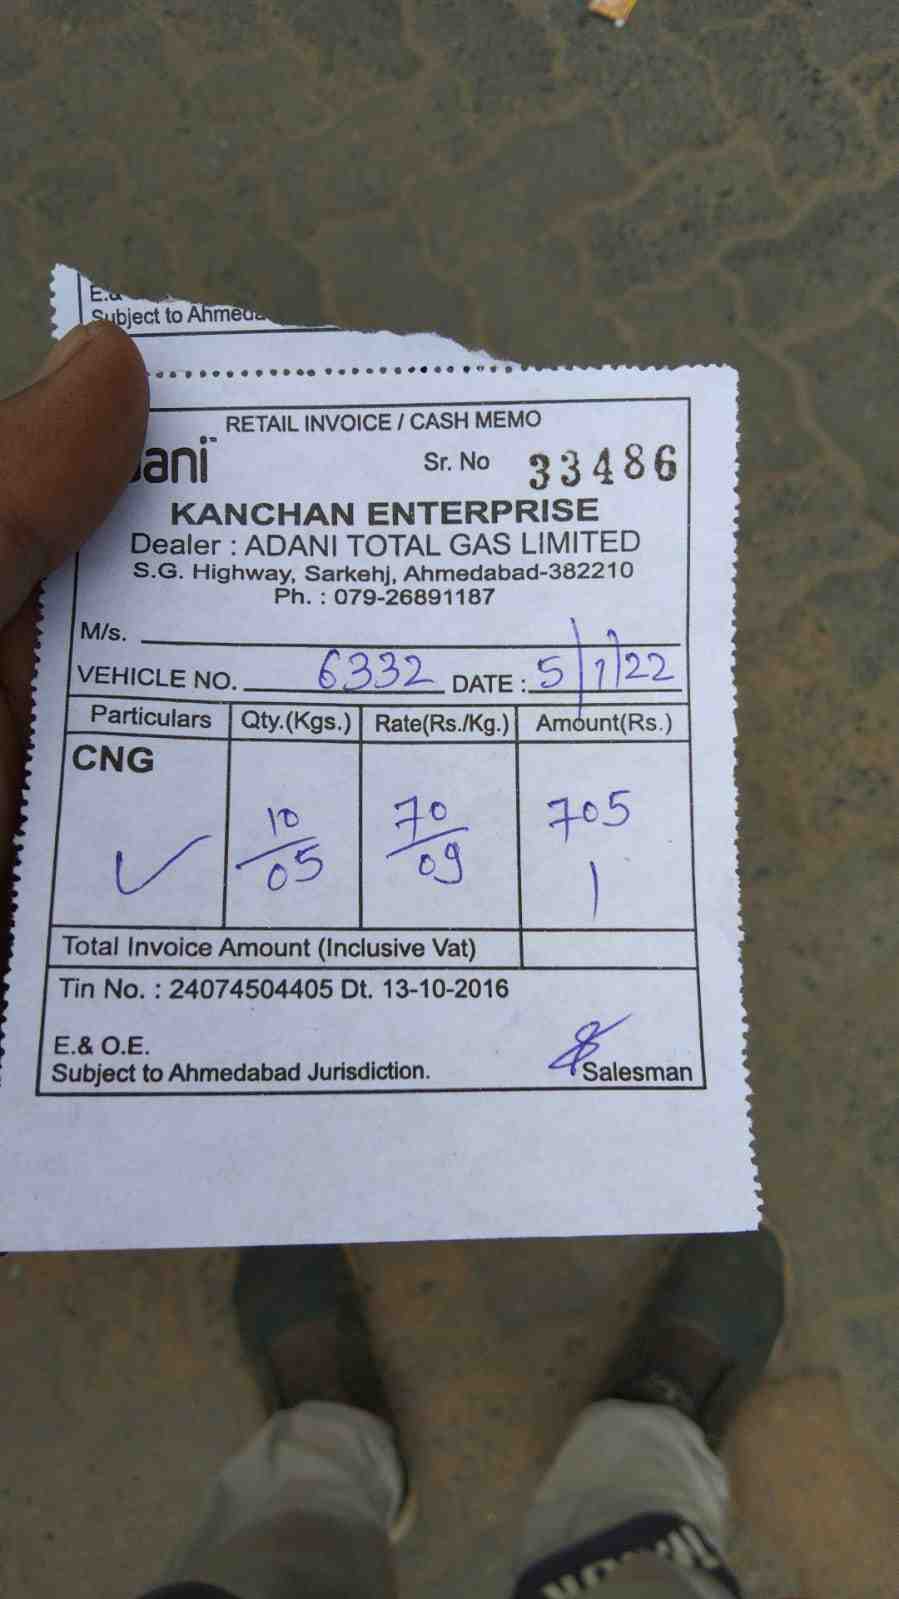 Subject to Ahmeda
RETAIL INVOICE / CASH MEMO
ani Sr. No 33486
KANCHAN ENTERPRISE
Dealer : ADANI TOTAL GAS LIMITED
S.G. Highway, Sarkehj, Ahmedabad-382210
Ph. : 079-26891187
M/s.
VEHICLE NO. 6332 DATE : 5/1/22
Particulars Qty.(Kgs.) Rate(Rs./Kg.) Amount(Rs.)
CNG
10 70 705
05 09
Total Invoice Amount (Inclusive Vat)
Tin No. : 24074504405 Dt. 13-10-2016
E.& O.E.
Subject to Ahmedabad Jurisdiction. Salesman